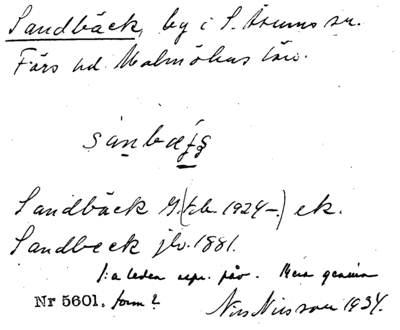 Sandbäck, by i S. Åsums sn.
Färs hd. Malmöhus län.
Sandbäck G. (t.b. 1924–.) ek.
Sandbeck jb. 1881.
1:a leden upr. påv. Mera genuin
Nr 5601. form?
Nils Nilsson 1934.